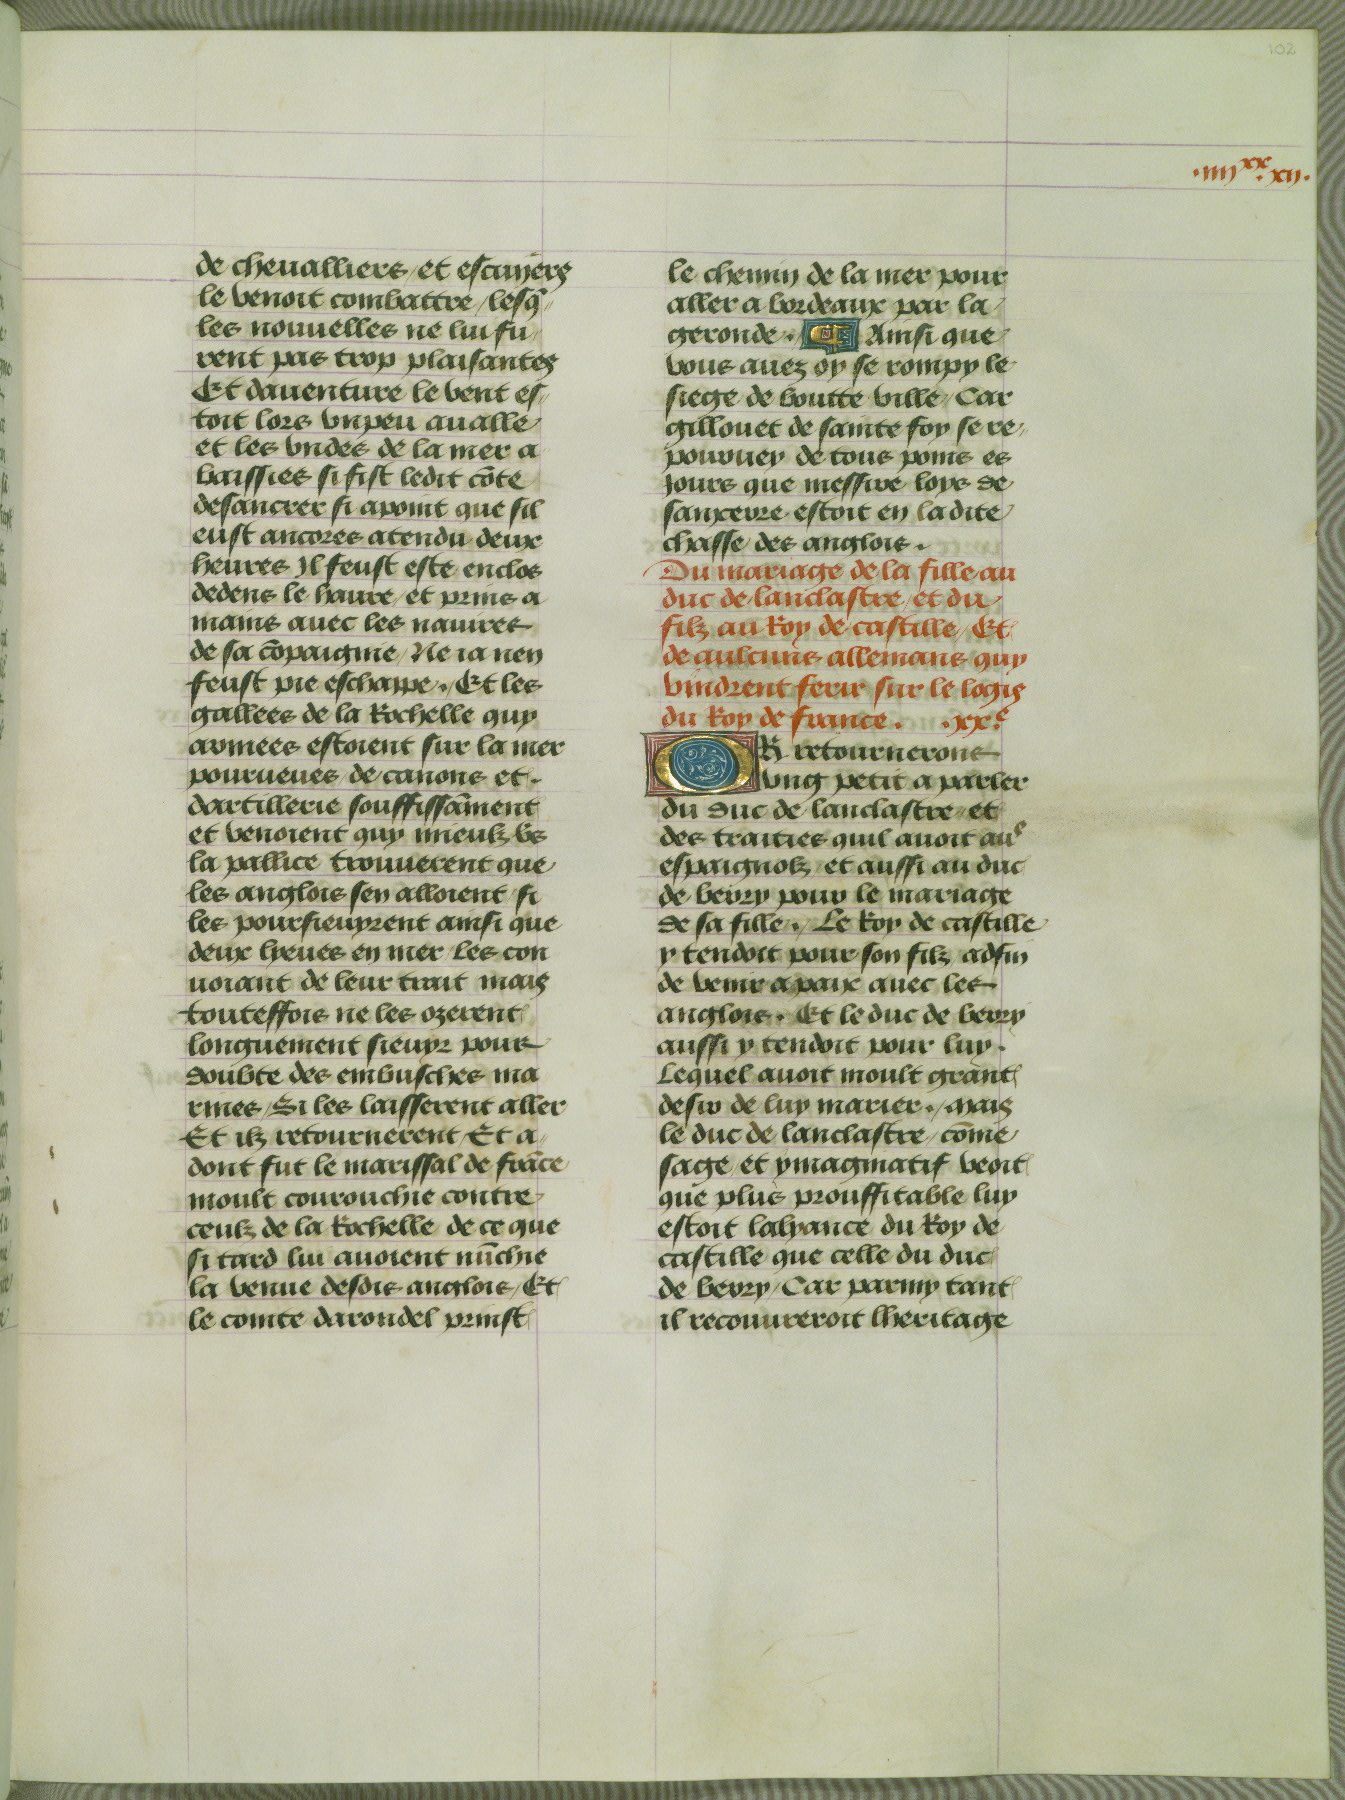 102
·iiii xx·xii·
de cheualliers / et escuiers
le venoit combattre / lesq̄‑
les nouuelles ne lui fu
rent pas trop plaisantes
Et dauenture le vent es/
toit lors vnpeu aualle
et les vndes de la mer a
baissies si fist ledit cōte
desancrer si apoint que sil
eust ancores atendu deux
heures Il feust este enclos
dedens le haure / et prins a
mains auec les nauires
de sa cōpaignie / Ne ia nen
feust pie eschappe. Et les
gallees de la Rochelle quy
armees estoient sur la mer
pourueues de canons et.
dartillerie souffissāment
et venoient quy mieulz v̄s
la pallice trouuerent que
les anglois sen alloient si
les poursieuyrent ainsi que
deux lyeues en mer Les con
uoiant de leur trait mais
touteffois ne les ozerent
longuement sieuyr pour
doubte des embusches ma
rines / Si les laisserent aller
Et ilz retournerent / Et a/
dont fut le marissal de frāce
moult courouchie contre
ceulz de la Rochelle de ce que
si tard lui auoient nūchie
la venue desdis anglois / Et
le comte darondel prinst
le chemin de la mer pour
aller a bordeaux par la/
geronde. Ainsi que
vous auez oy se rompy le
siege de boutte ville / Car
gillouet de sainte foy se re/
pourueu de tous poins es
jours que messire loys de
sanxeure estoit en ladite
chasse des anglois.
Du mariage de la fille au
duc de lanclastre / et du
filz au Roy de castille / Et
de aulcuns allemans quy
vindrent ferir sur le logis
du Roy de france. .xxᵉ
OR retournerons
vng petit a parler
du duc de lanclastre / et
des traities quil auoit auˢ
espaignolz / et aussi au duc
de berry pour le mariage
de sa fille. Le Roy de castille
y tendoit pour son filz adfin
de venir a paix auec les
anglois. Et le duc de berry
aussi y tendoit pour luy.
Lequel auoit moult grant
desir de luy marier. / Mais
le duc de lanclastre / cōme
sage / et ymaginatif veoit
que plus prouffitable luy
estoit lalyance du Roy de
castille que celle du duc
de berry / Car parmy tant
il recouureroit lheritage